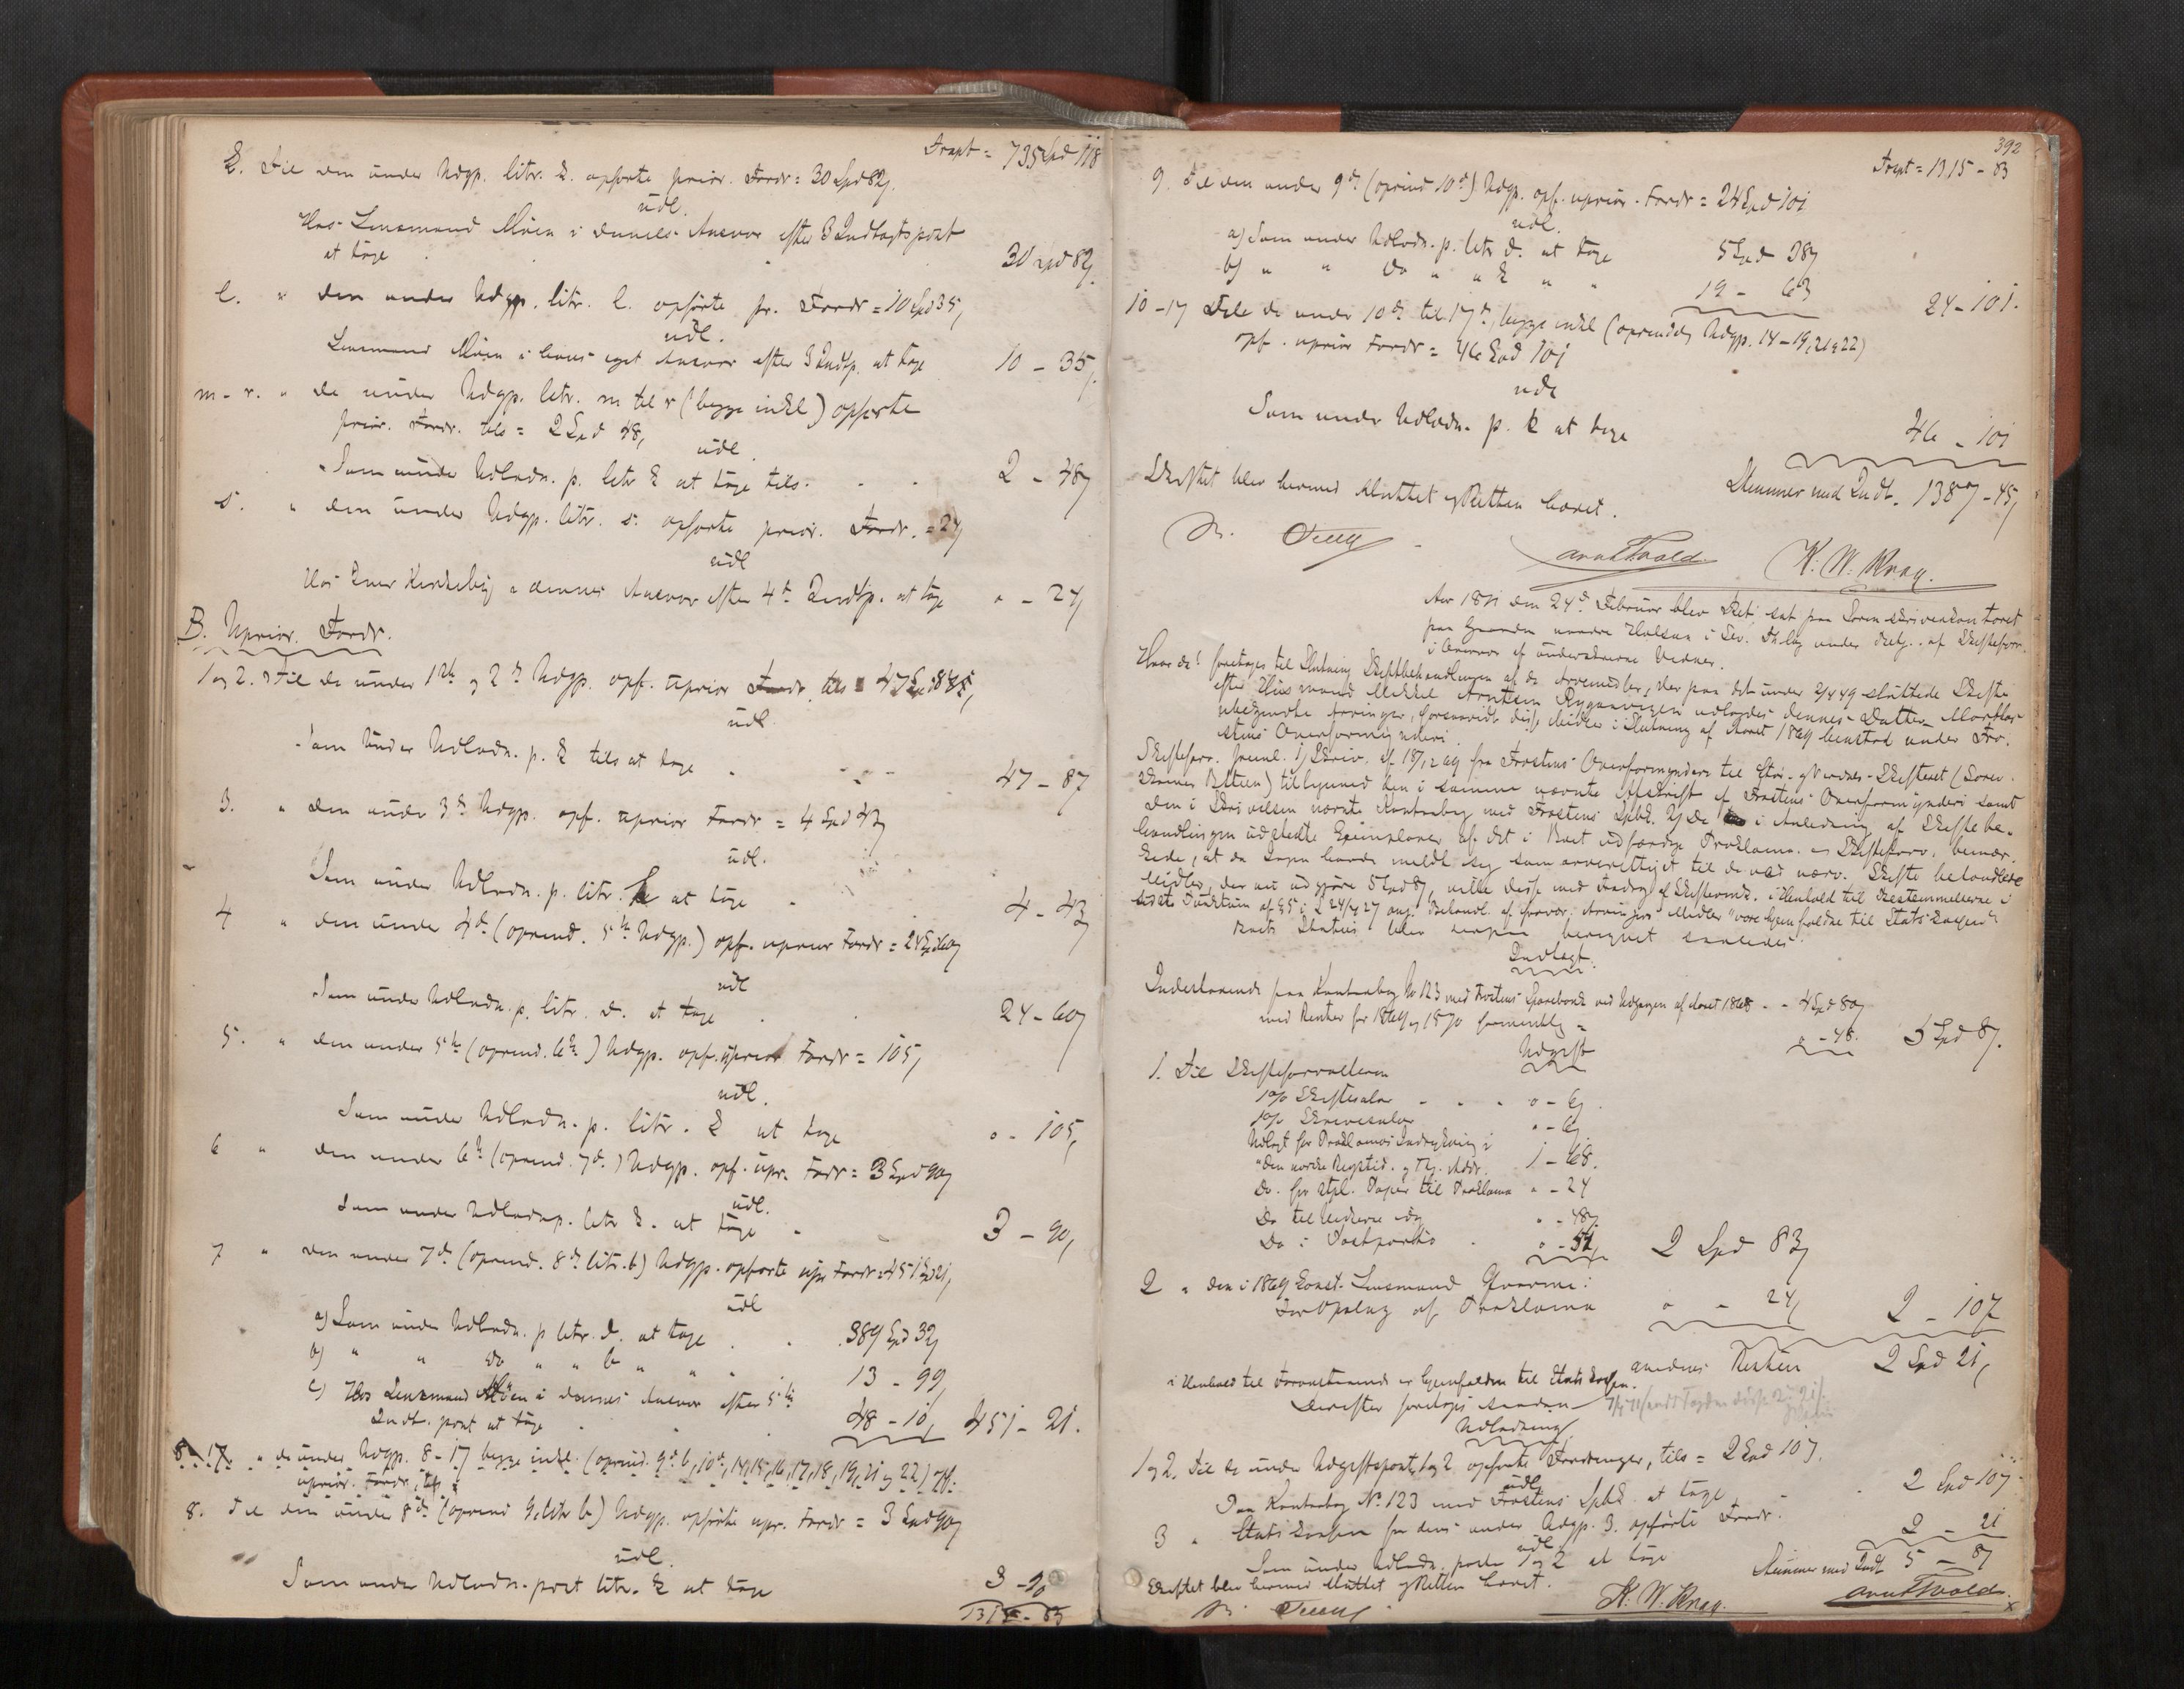 Trspt = 735 Spd 118
k. Til den under Udgp. litr. k. opførte prior. Fordr = 30 Spd 82
udl.
Hos Lensmand Moen i dennes Ansvar efter 3 Indtægtspost
at tage . . 30 Spd 82
l. " den under Udgp. litr. l. opførte pr. Fordr = 10 Spd 35
udl.
Lensmand Moen i hans eget Ansvar efter 3 Indtp. at tage 10 – 35
m - r. " de under Udgp. litr. m til r (begge inkl) opførte
prior. Fordr. tils = 2 Spd 48
udl.
Som under Udlodn. p. litr k at tage tils. . . 2 – 48
s. " den under Udgp. litr. s. opførte prior. Fordr. = 24
udl
Hos Kirkeby i dennes Ansvar efter 4de Indtp. at tage " – 24
B. Uprior. Fordr.
1 og 2. Til de under 1ste og 2d Udgp. opf. uprior Fordr. tils = 47 Spd
udl.
Som under Udlodn. p. k tils at tage . . 47 – 87
3. " den under 3d Udgp. opf. uprior Fordr = 4 Spd 43
udl.
Som under Udlodn. p. litr. k at tage . 4 – 43
4 " den under 4d (oprind. 5te Udgp.) opf. uprior Fordr = 24 Spd 60
udl
Som under Udlodn. p. litr. d. at tage . 24 – 60
5. " den under 5te (oprind. 6te) Udgp. opf. uprior Fordr = 105
udl.
Som under Udlodn. p. litr. k at tage " – 105
6 " den under 6te (oprind. 7d.) Udgp. opf. upr. Fordr = 3 Spd 90
udl.
Som under Udlodnp. litr k. at tage . 3 – 90
7 " den under 7d (oprind. 8d litr. b) Udgp. opførte upr Fordr = 451 Spd 21
udl
a) Som under Udlodn. p litr. d. at tage . . 389 Spd 32
b) " " do " " " " . 13 – 99
c) Hos Lensmand Moen i dennes Ansvar efter 5te
Indt. post at tage . . 48 – 10 451 – 21.
8 - 17. " de under Udgp. 8 - 17 begge inkl. (oprind. 9d b, 10d, 14, 15, 16, 17, 18, 19, 21 og 22) opf.
uprior. Fordr. tils =
8. Til den under 8d (oprind 9 litr b) Udgp. opførte upr. Fordr = 3 Spd 90
udl.
Som under Udlodn. post litr. k at tage 3 – 90
1315 – 83
392
Trspt = 1315 – 83
9. Til den under 9d (oprind 10d) Udgp. opf. uprior. Fordr = 24 Spd 101
udl.
a) Som under Udlodn. p. litr d. at tage 5 Spd 38
b) " " do " " k " " 19 – 63 24 – 101.
10 - 17 Til de under 10d til 17d, begge inkl (oprindelig Udgp. 14 - 19, 21 & 22)
opf. uprior Fordr = 46 Spd 101
udl
Som under Udlodn. p. k at tage 46 – 101
Stemmer med Indt. 1387 – 45
Skiftet blev hermed sluttet og Retten hævet.
K. W. Krag.
Aar 1871 den 24d Februar blev Ret sat paa Sorenskriverkontoret
paa Gaarden nordre Halsan i Lev. Thlag under Betj. af Skifteforv.
i Overvær af underskrevne Vidner.
Hvorda! foretoges til Slutning Skiftebehandlingen af de Arvemidler, der paa det under 2/4 49 sluttede Skifte
efter Husmand Mikkel Arntsen udlagdes dennes Datter
ubekjendte Arvinger, forsaavidt disse Midler i Slutning af Aaret 1869 henstod under Fro-
stens Overformynderi.
Skifteforv. freml. 1) Skriv. af 18/12 69 fra Frostens Overformynderi til Stør- og Verdals Skifteret (Soren-
skriver ) tilligemed den i samme nævnte Afskrift af Frostens Overformynderi samt
den i Skrivelsen nævnte Kontrabog med Frostens Spbk. 2) De i Anledning af Skiftebe-
handlingen udstedte Exemplarer af det i Bret udfærdige Proklama. – Skifteforv. bemær-
kede, at da Ingen havde meldt sig som arveberettiget til de ved nærv. Skifte behandlede
Midler, der nu udgjøre 5 Spd 87, ville disse med Fradrag af Skifteomk. i Henhold til Bestemmelserne i
sidste Punktum af § 5 i L 24/9 27 ang. Behandl. af fravær. Arvingers Midler "være hjemfaldne til Statskassen"
Boets Status blev derpaa beregnet saaledes:
Indtægt.
Indestaaende paa Kontrabog No 123 med Frostens Sparebank ved Udgangen af Aaret 1868 – 4 Spd 80
med Renter for 1869 og 1870 " – 48. 5 Spd 87.
Udgift
1. Til Skifteforvalteren
1% Skiftesalær . . . " – 6
1% Skriversalær " – 6
Udlagt for Proklamas Indrykning i
"den norske Rigstid. og Thj. Addr. 1 – 68.
Do. for stpl. Papir til Proklama " – 24
Do til Vidnerne idag " – 48
Do i Postporto . " – 51 2 Spd 83
2 " den i 1869 konst. Lensmand
for Opslag af Proklama " – 24 2 – 107
Resten 2 Spd 21
i Henhold til Foranstaaende er hjemfalden til Statskassen.
Derefter foretoges saadan
Udlodning
1 og 2. Til de under Udgiftspost 1 og 2 opførte Fordringer, tils = 2 Spd 107.
udl.
Paa Kontrabog No 123 med Frostens Spbk. at tage . 2 Spd 107
3 " Statskassen for dens under Udgp. 3. opførte Fordr.
udl
Som under Udlodn. poste 1 og 2 at tage 2 – 21
Stemmer med Indt 5 – 87
Skiftet blev hermed sluttet og Retten hævet.
K. W. Krag.